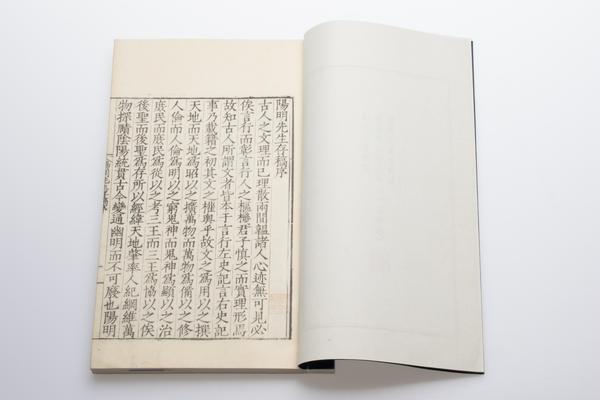 陽明先生存稿序
古人之文理而已理散兩間韞諸人心迹無可見必
俟言行而彰言行人之樞機君子慎之而實理形焉
故知古人所謂文者皆本于言行左史記言右史記
事乃載籍之初其文之權輿乎故文之爲用以之撰
天地而天地爲昭以之擴萬物而萬物爲備以之修
人倫而人倫爲明以之窮鬼神而鬼神爲顯以之治
庶民而庶民爲從以之考三王而三王爲協以之俟
後聖而後聖爲存所以經緯天地肇率人紀綱維萬
物探賾陰陽統貫古今變通幽明而不可廢也陽明